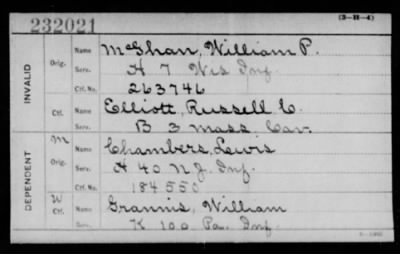 232021
(3-H-4)
INVALID
Orig.
Name McShan, William P.
Serv. H 7 Wis Inf.
Ctf. No. 263746
Ctf.
Name Elliott, Russell C.
Serv. B 3 Mass. Cav.
DEPENDENT
M
Orig.
Name Chambers, Lewis
Serv. H 40 N.J. Inf.
Ctf. No. 184550
W
Ctf.
Name Grannis, William
Serv. K 100 Pa. Inf.